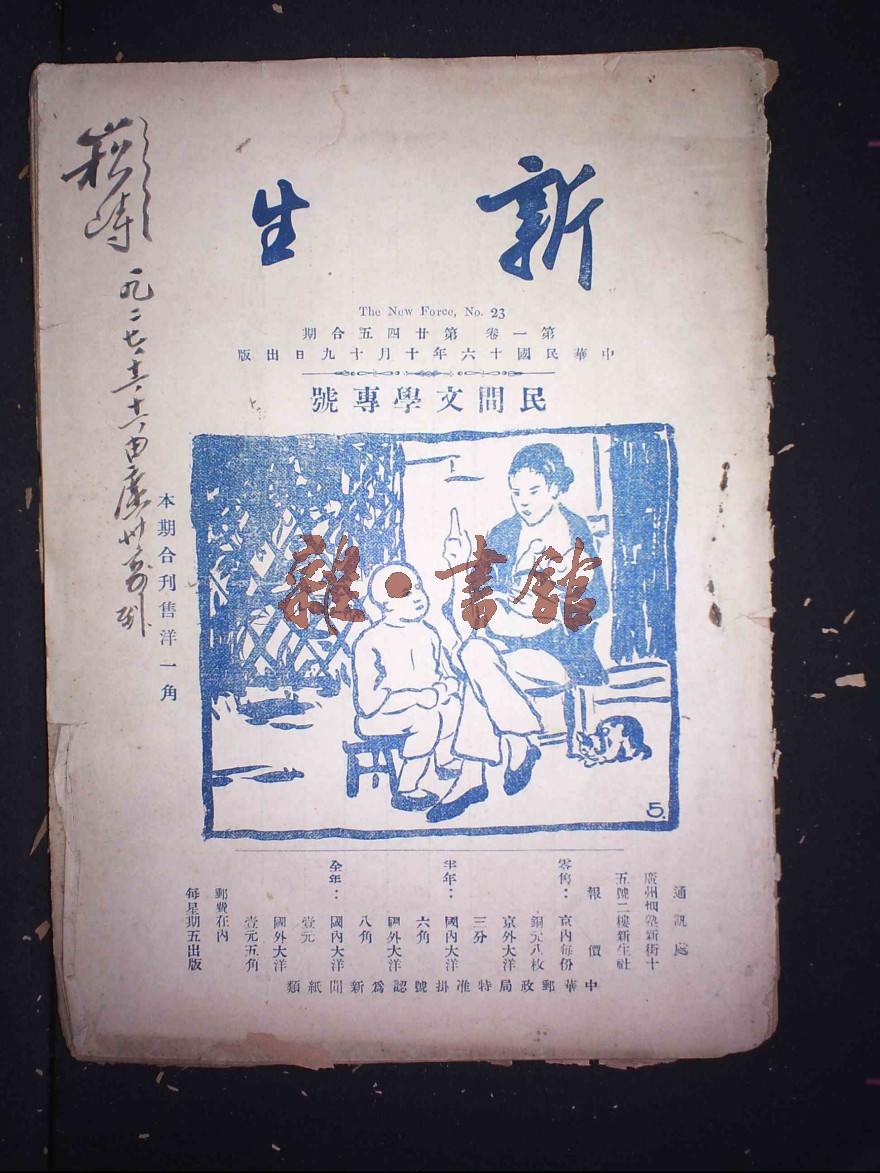 新生
The New Force, No. 23
第一卷 第廿四五合期
中華民國十六年十月十九日出版
民間文學專號
本期合刊售洋一角
一九二七、十二、十六、由廣州寄到
雜·書館
5.
通訊處
廣州
新街十
五號二樓新生社
報價
零售：京內每份
銅元八枚
京外大洋
三分
半年：國內大洋
六角
國外大洋
八角
全年：國內大洋
壹元
國外大洋
壹元五角
郵費在內
每星期五出版
中華郵政局特准掛號認爲新聞紙類